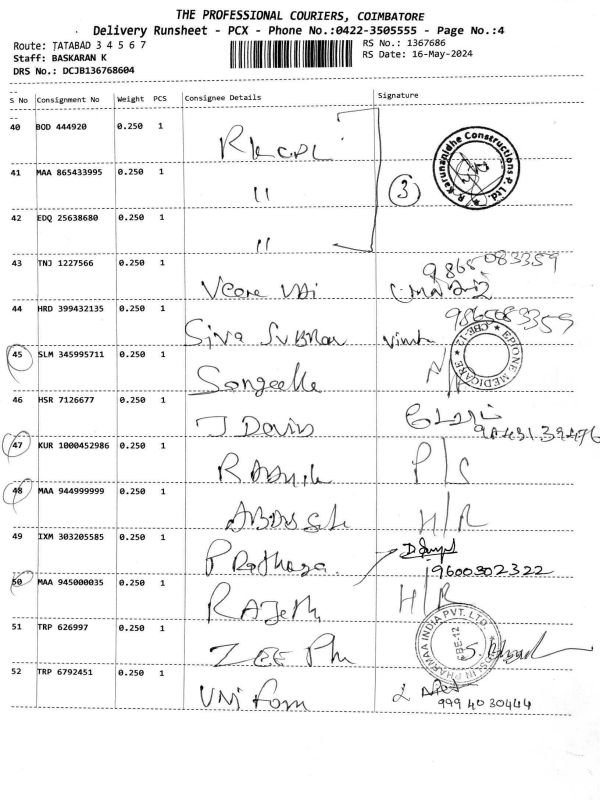 THE PROFESSIONAL COURIERS, COIMBATORE
Delivery Runsheet - PCX - Phone No.:0422-3505555 - Page No.:4
Route: TATABAD 3 4 5 6 7
RS No.: 1367686
Staff: BASKARAN K
RS Date: 16-May-2024
DRS No.: DCJB136768604
S No Consignment No Weight PCS Consignee Details Signature
40 BOD 444920 0.250 1
R. Karunanidhe Constructions P. Ltd.
41 MAA 865433995 0.250 1 11 3
42 EDQ 25638680 0.250 1 11
43 TNJ 1227566 0.250 1 9865083359
44 HRD 399432135 0.250 1 Siva 9865083359
45 SLM 345995711 0.250 1 EPIONE MEDICARE CBE-12
46 HSR 7126677 0.250 1 J Davis
47 KUR 1000452986 0.250 1 P/S
48 MAA 944999999 0.250 1 H/R
49 IXM 303205585 0.250 1 9600302322
50 MAA 945000035 0.250 1 H/R
51 TRP 626997 0.250 1 ZEE PHARMAA INDIA PVT. LTD. CBE-12
52 TRP 6792451 0.250 1 Uni form 9994030444